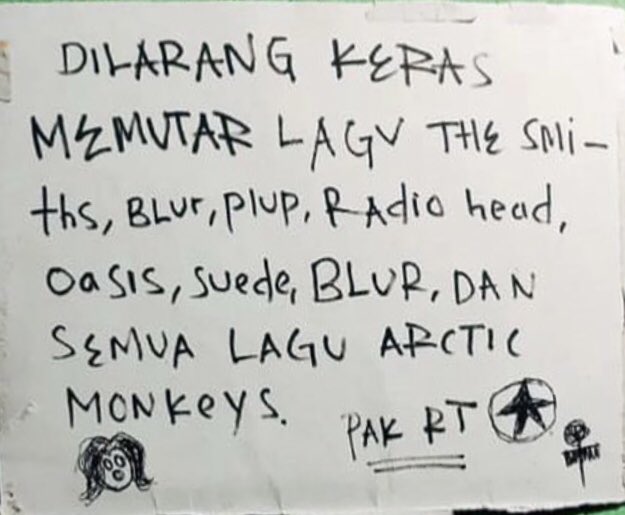 DILARANG KERAS
MEMUTAR LAGU THE SMi-
ths, BLur, PlUP, RAdio head,
OaSIS, suede, BLUR, DAN
SEMUA LAGU ARCTIC
MONKeYS.
PAK RT